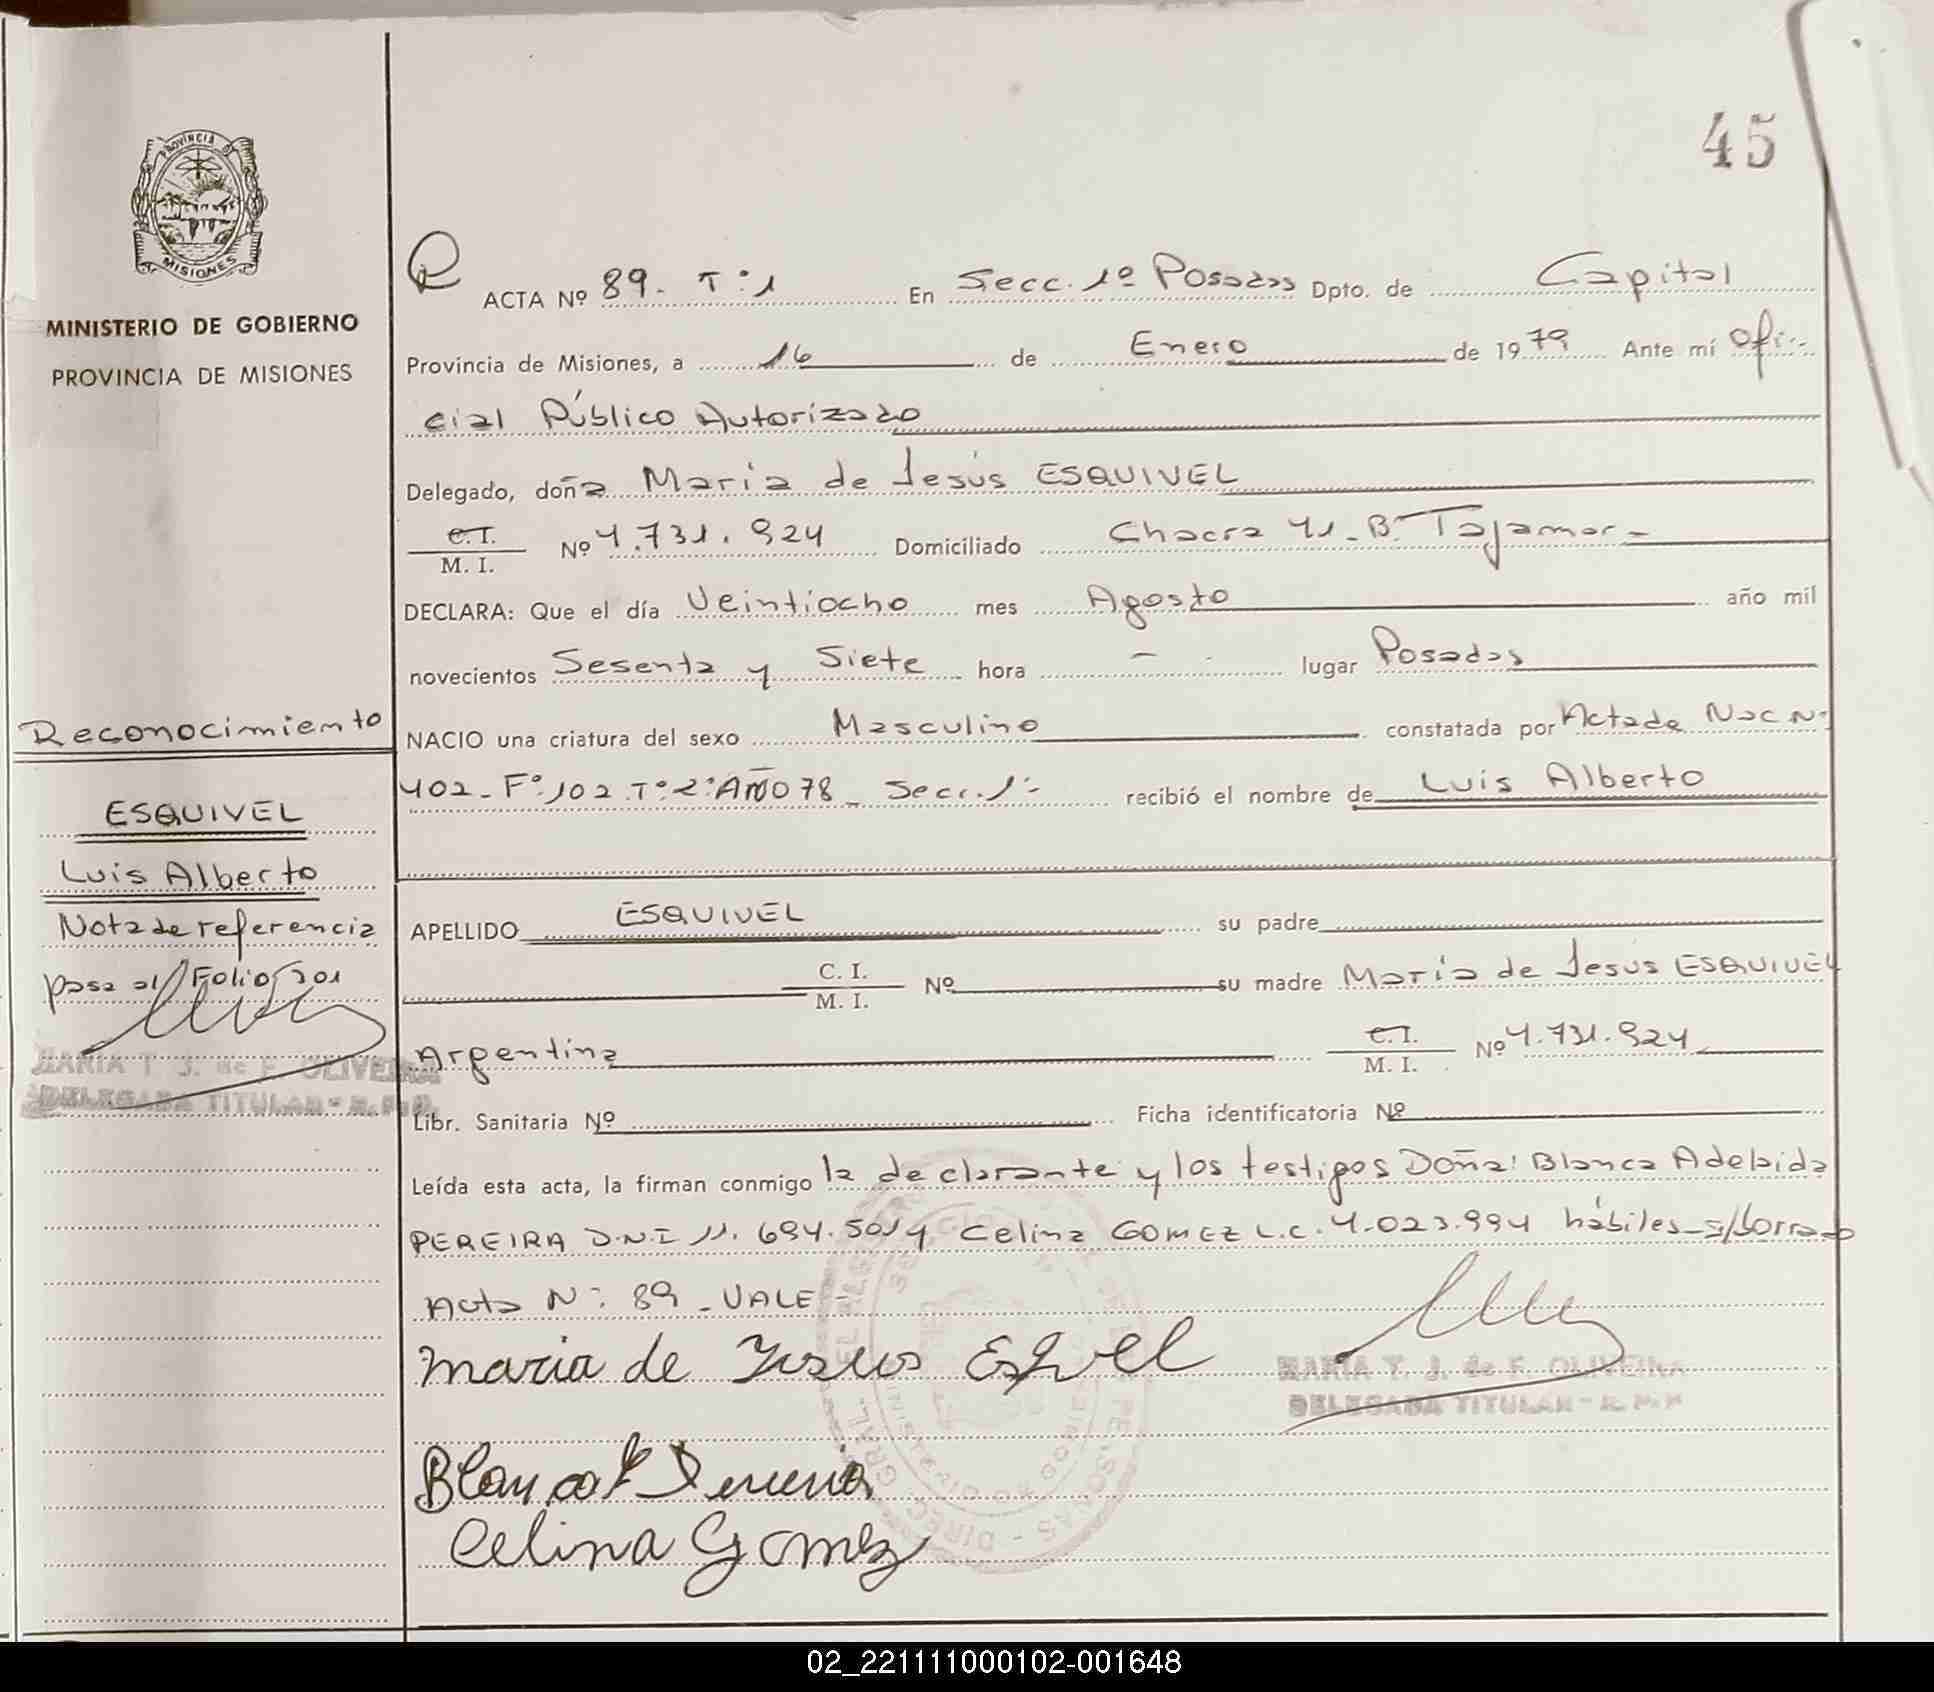 45
PROVINCIA DE
MISIONES
MINISTERIO DE GOBIERNO
PROVINCIA DE MISIONES
R
ACTA Nº 89. Tº: 1 En Secc. 1º Posadas Dpto. de Capital
Provincia de Misiones, a 16 de Enero de 1979 Ante mí Ofi-
cial Público Autorizado
Delegado, doña María de Jesús ESQUIVEL
C.I. M. I. Nº 4.731.924 Domiciliado Chacra 41 - Bº Tajamar -
DECLARA: Que el día Veintiocho mes Agosto año mil
novecientos Sesenta y Siete hora - - lugar Posadas
NACIO una criatura del sexo Masculino constatada por Acta de Nac Nº
402 - Fº: 102 Tº: 2º AÑO 78 - Secc. 1º - recibió el nombre de Luis Alberto
Reconocimiento
ESQUIVEL
Luis Alberto
Nota de referencia
pasa al Folio 201
MARIA T. J. de F. OLIVEIRA
DELEGADA TITULAR - R. P. P.
APELLIDO ESQUIVEL su padre
C. I. M. I. Nº su madre María de Jesús ESQUIVEL
Argentina C.I. M. I. Nº 4.731.924
Libr. Sanitaria Nº Ficha identificatoria Nº
Leída esta acta, la firman conmigo la declarante y los testigos Doña: Blanca Adelaida
PEREIRA D.N.I 11.694.501 y Celina GOMEZ L.C. 4.023.994 hábiles - s/borrado
Acta Nº: 89 - VALE -
Maria de Jesus Esqvel
MARIA T. J. de F. OLIVEIRA
DELEGADA TITULAR - R. P. P.
Blanca A Pereira
Celina Gomez
02_221111000102-001648